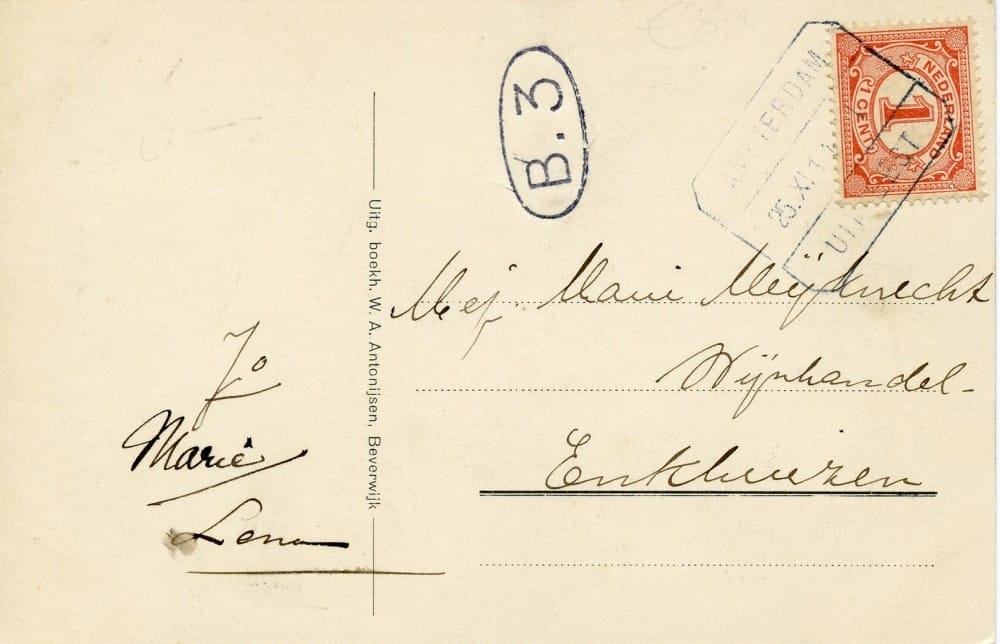 B.3
AMSTERDAM
25.XI.1
UITGEEST
NEDERLAND
1
1 CENT
Mej. Marie Meijknecht
Wijnhandel-
Enkhuizen
Jo
Marie
Lena
Uitg. boekh. W. A. Antonijsen, Beverwijk